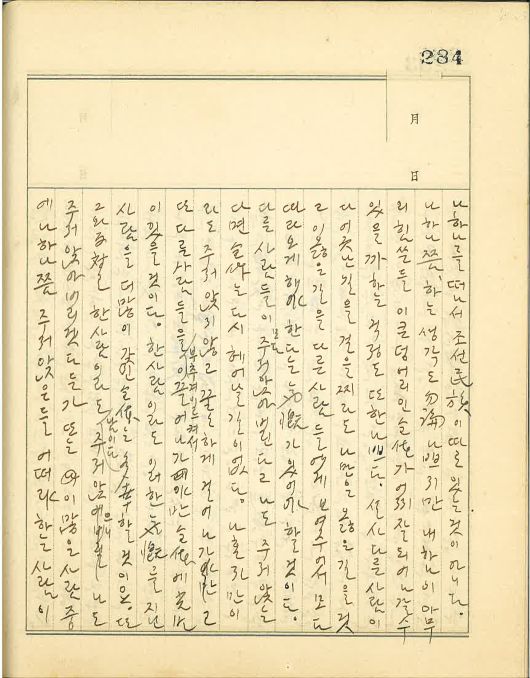 284
月
日
나 하나를 떠나서 조선民族이 따로 있는 것이 아니다.
나 하나쯤, 하는 생각도 勿論 나쁘지만 내 하나이 아무
리 힘쓴들 이 큰 덩어리인 가 어찌 잘 되어 나갈 수
있을까 하는 걱정도 또한 나쁘다. 설사 다른 사람이
다 어긋난 길을 걸을찌라도 나만은 옳은 길을 것
고 이 옳은 길을 다른 사람들에게 보여주어서 모다
따라오게 해야 한다는 氣慨가 있어야 할 것이다.
다른 사람들이 모도 주저앉어 버린다고 나도 주저앉는
다면 는 다시 헤어날 길이 없다. 나 혼자만이
라도 주저앉지 않고 꿋꿋하게 걸어 나가야만 그
또 다른 사람들을 부축겨 이르켜서 이끌어 나가야만 에 꽃
이 있을 것이다. 한 사람이라도 이러한 氣慨를 지닌
사람을 더 많이 갖인 할 것이오. 또
그와 한 사람이라도 주저앉에 나도
주저앉어 버리겠다든가 또는 이 많은 사람 중
에 나 하나쯤 주저앉은들 어떠랴 하는 사람이